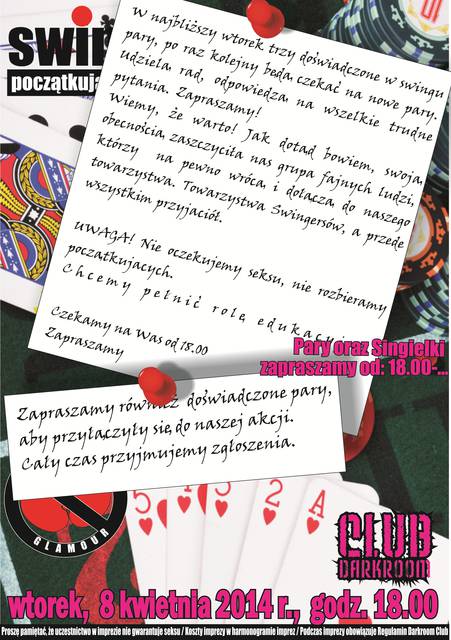 SWI
początkują
W najbliższy wtorek trzy doświadczone w swingu
pary, po raz kolejny będą czekać na nowe pary.
Udzielą rad, odpowiedzą na wszelkie trudne
pytania. Zapraszamy!
Wiemy, że warto! Jak dotąd bowiem, swoją
obecnością zaszczyciła nas grupa fajnych ludzi,
którzy na pewno wrócą i dołączą do naszego
towarzystwa. Towarzystwa Swingersów, a przede
wszystkim przyjaciół.
UWAGA! Nie oczekujemy seksu, nie rozbieramy
początkujących.
Chcemy pełnić rolę edukacy
Czekamy na Was od 18.00
Zapraszamy
Pary oraz Singielki
zapraszamy od: 18.00-...
Zapraszamy również doświadczone pary,
aby przyłączyły się do naszej akcji.
Cały czas przyjmujemy zgłoszenia.
GLAMOUR
5 4 3 2 A
CLUB
DARKROOM
wtorek, 8 kwietnia 2014 r., godz. 18.00
Proszę pamiętać, że uczestnictwo w imprezie nie gwarantuje seksu / Koszty imprezy w harmonogramie imprez / Podczas imprezy obowiązuje Regulamin Darkroom Club